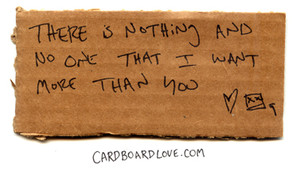 THERE IS NOTHING AND
NO ONE THAT I WANT
MORE THAN YOU
CARDBOARDLOVE.COM